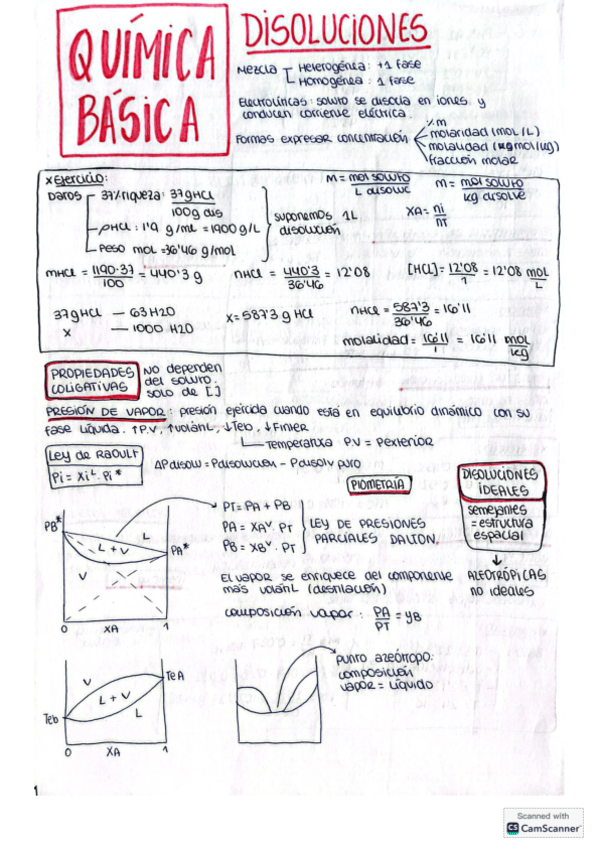 QUÍMICA
BÁSICA
DISOLUCIONES
Mezcla
Heterogénea: +1 fase
Homogénea: 1 fase
Electrolíticas: soluto se disocia en iones y
conducen corriente eléctrica.
Formas expresar concentración
%m
molaridad (mol/L)
molalidad (kg mol/kg)
fracción molar
x Ejercicio:
Datos
37% riqueza: 37gHCl
100g dis
ρHCl: 1'9 g/mL = 1900 g/L
Peso mol = 36'46 g/mol
suponemos 1L
disolución
M = mol soluto
L disolve
m = mol soluto
kg disolve
XA = ni
nt
mHCl = 1190·37 = 440'3 g
100
nHCl = 440'3 = 12'08
36'46
[HCl] = 12'08 = 12'08 mol
1 L
37gHCl — 63 H2O
x — 1000 H2O
x = 587'3 g HCl
nHCl = 587'3 = 16'11
36'46
molalidad = 16'11 = 16'11 mol
1 kg
PROPIEDADES
COLIGATIVAS
No dependen
del soluto.
solo de [ ]
PRESIÓN DE VAPOR: presión ejercida cuando está en equilibrio dinámico con su
fase líquida. ↑P.V, ↑volátil, ↓Teb, ↓Finter
Temperatura P.V = Pexterior
Ley de RAOULT
Pi = XiL · Pi*
ΔPdisolu = Pdisolución - Pdisolv puro
PIOMETRÍA
DISOLUCIONES
IDEALES
semejantes
= estructura
espacial
AZEOTRÓPICAS
no ideales
PT = PA + PB
PA = XAV · PT
PB = XBV · PT
LEY DE PRESIONES
PARCIALES DALTON.
PB*
L
L + V
V
PA*
0 XA 1
El vapor se enriquece del componente
más volátil (destilación)
composición vapor: PA = yB
PT
TeA
V
L + V
L
Teb
0 XA 1
Punto azeótropo:
composición
vapor = líquido
1
Scanned with
CS CamScanner